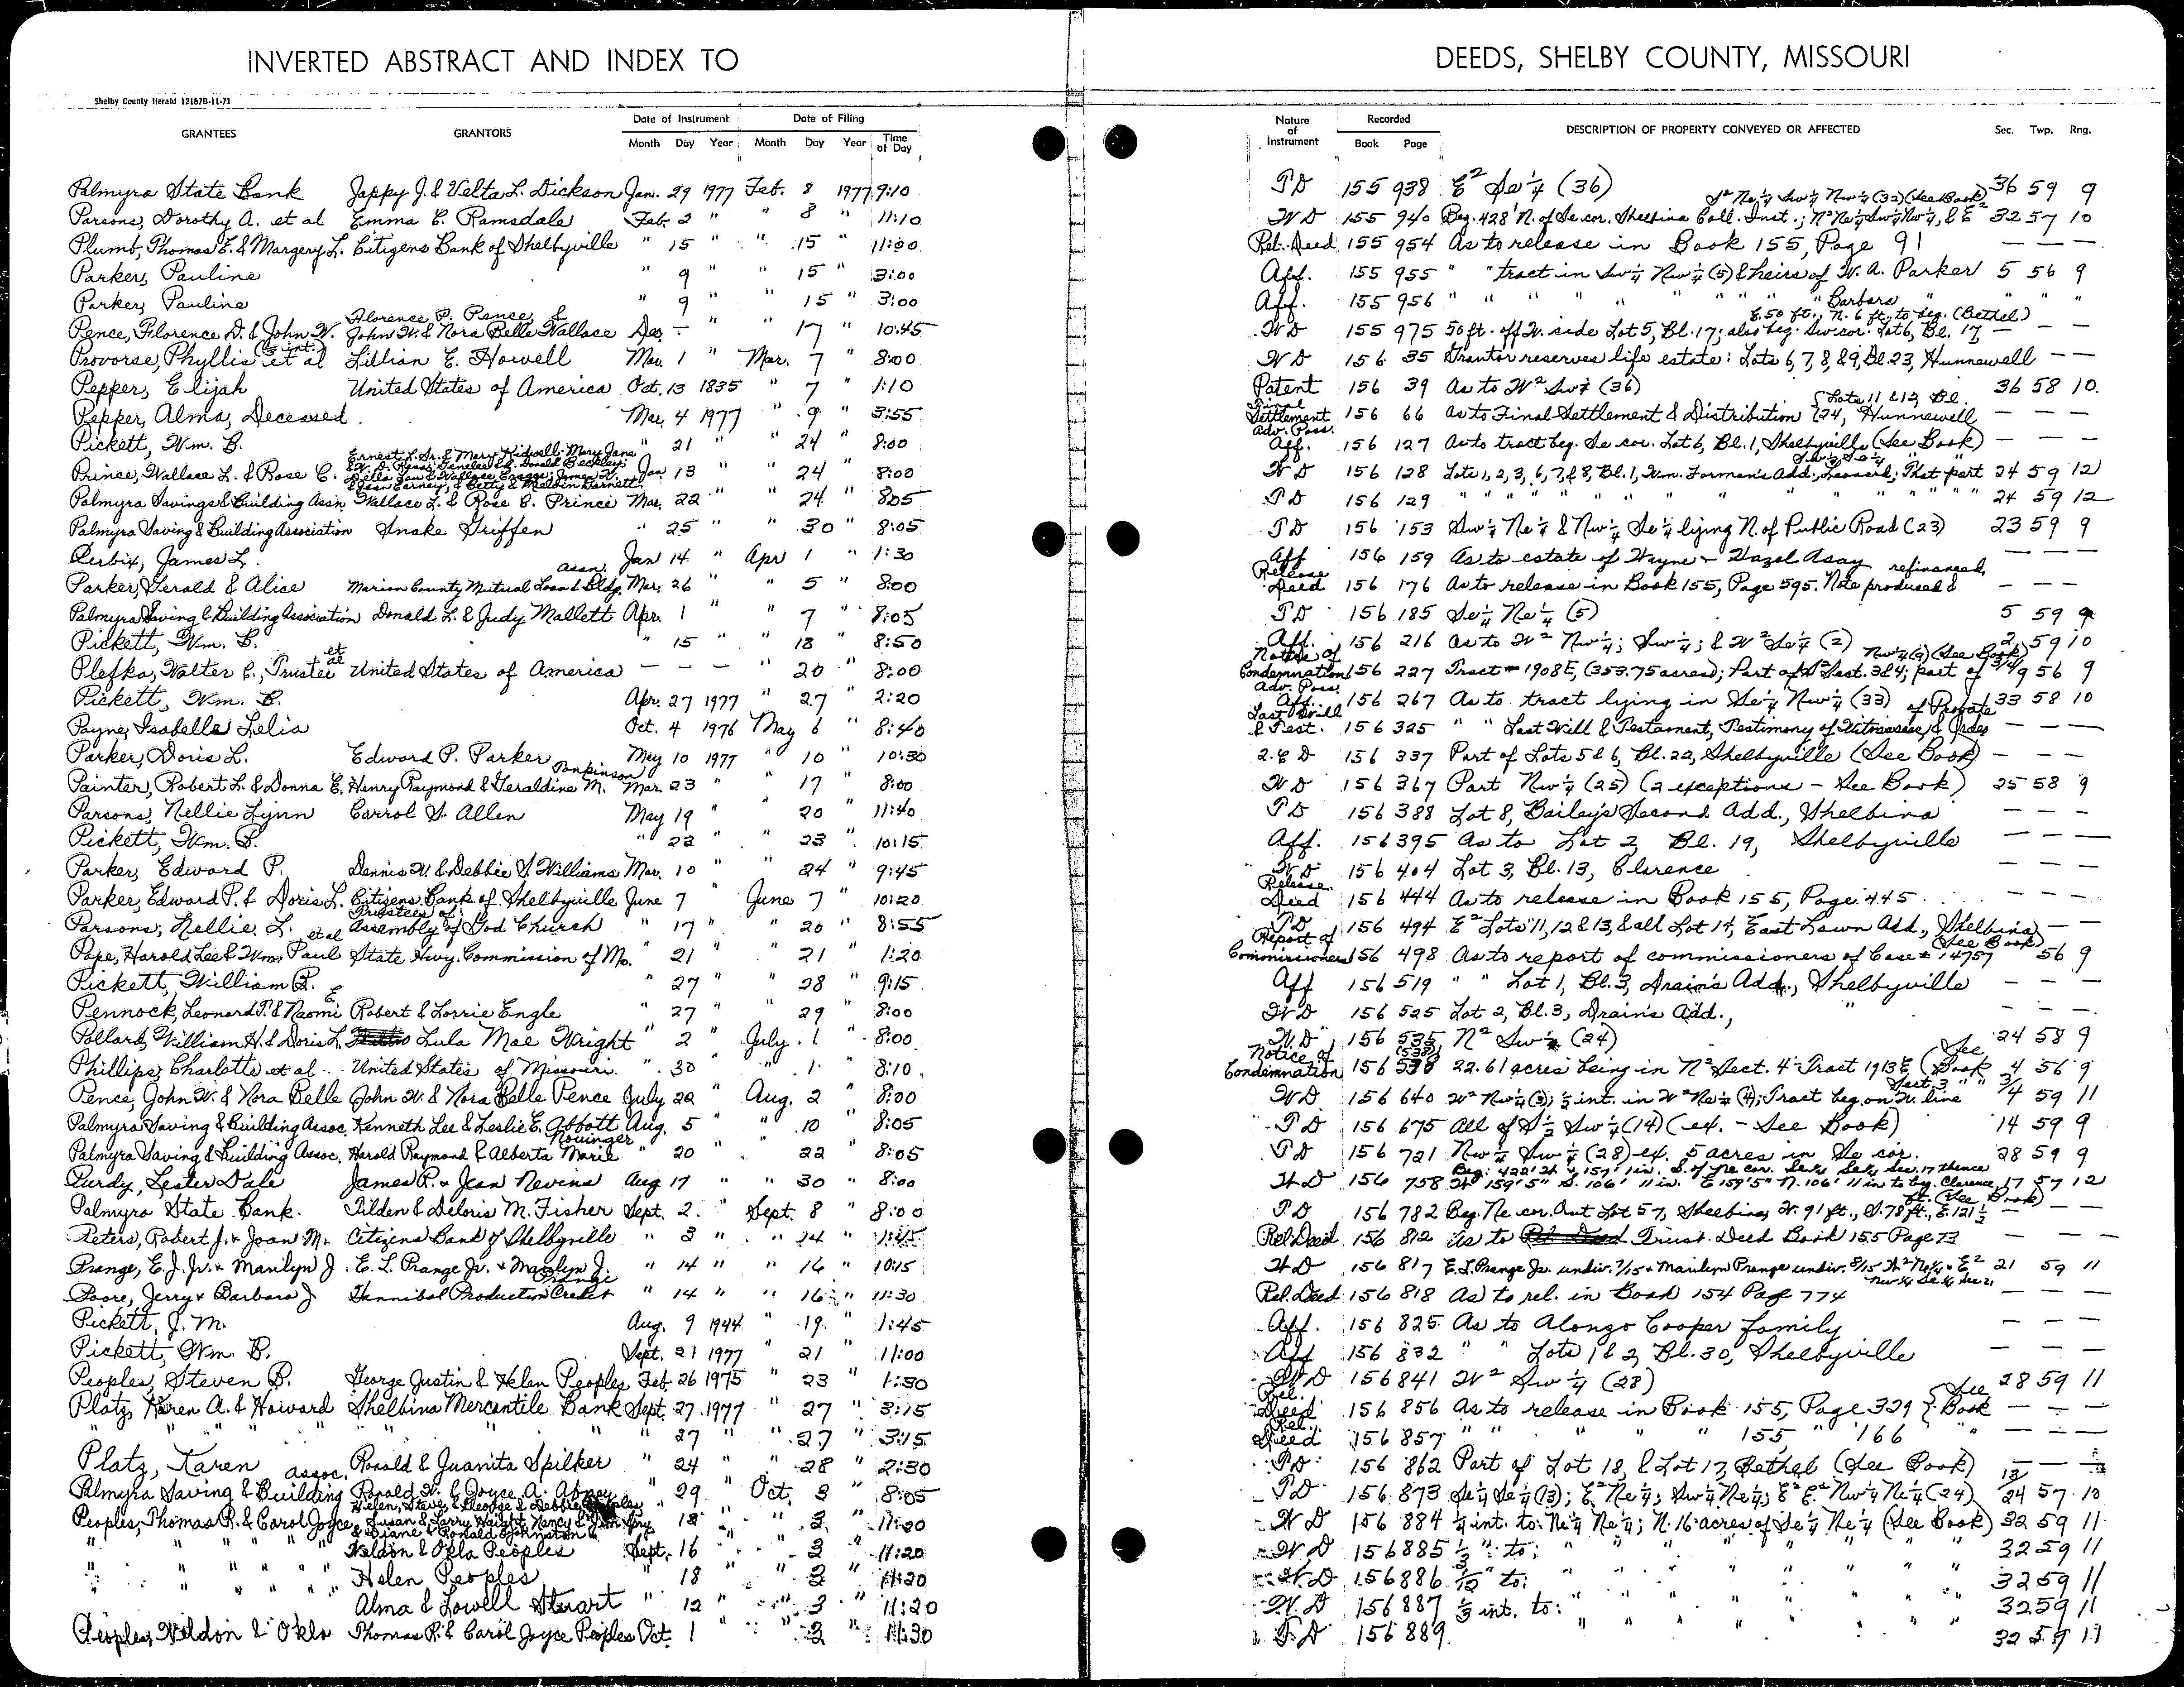 INVERTED ABSTRACT AND INDEX TO DEEDS, SHELBY COUNTY, MISSOURI
Shelby County Herald 12187B-11-71
GRANTEES GRANTORS Date of Instrument Month Day Year Date of Filing Month Day Year Time of Day Nature of Instrument Recorded Book Page DESCRIPTION OF PROPERTY CONVEYED OR AFFECTED Sec. Twp. Rng.
Palmyra State Bank Jappy J. & Velta L. Dickson Jan. 29 1977 Feb. 8 1977 9:10 TD 155 938 E² Se¼ (36) 36 59 9
Parsons, Dorothy A. et al Emma E. Ramsdale Feb. 2 " " 8 " 11:10 WD 155 940 Beg. 428' N. of Se cor. Shelbina Coll. Inst.; N² Ne¼ Sw¼ Nw¼, & E² S² Ne¼ Sw¼ Nw¼ (32) (See Book) 32 57 10
Plumb, Thomas E. & Margery L. Citizens Bank of Shelbyville " 15 " " 15 " 11:00 Rel. Deed 155 954 As to release in Book 155, Page 91 — — —
Parker, Pauline " 9 " " 15 " 3:00 Aff. 155 955 " " tract in Sw¼ Nw¼ (5) & heirs of W. A. Parker 5 56 9
Parker, Pauline " 9 " " 15 " 3:00 Aff. 155 956 " " " " " " " " Barbara " " " "
Pence, Florence D. & John W. Florence P. Pence, & John W. & Nora Belle Wallace Dec. — " " 17 " 10:45 WD 155 975 50 ft. off W. side Lot 5, Bl. 17; also beg. Sw cor. Lot 6, Bl. 17 E. 50 ft., N. 6 ft. to beg. (Bethel) — — —
Provorse, Phyllis et al (⅓ int.) Lillian E. Howell Mar. 1 " Mar. 7 " 8:00 WD 156 35 Grantor reserves life estate: Lots 6, 7, 8, & 9, Bl. 23, Hunnewell — —
Pepper, Elijah United States of America Oct. 13 1835 " 7 " 1:10 Patent 156 39 As to W² Sw¼ (36) 36 58 10
Pepper, Alma, Deceased Mar. 4 1977 " 9 " 3:55 Final Settlement 156 66 As to Final Settlement & Distribution (Lots 11 & 12, Bl. 24, Hunnewell — — —
Pickett, Wm. B. " 21 " " 24 " 8:00 Adv. Poss. Aff. 156 127 As to tract beg. Se cor. Lot 6, Bl. 1, Shelbyville (See Book) — — —
Prince, Wallace L. & Rose C. Ernest L. Sr. & Mary Kidwell; Mary Jane & Donald Beckley; James W. & Betty & Meldon Barnett Jan. 13 " " 24 " 8:00 WD 156 128 Lots 1, 2, 3, 6, 7, & 8, Bl. 1, Wm. Forman's Add., Leonard; That part Sw¼ Se¼ 24 59 12
Palmyra Savings & Building Assn. Wallace L. & Rose C. Prince Mar. 22 " " 24 " 8:05 TD 156 129 " " " " " " " " " " " 24 59 12
Palmyra Saving & Building Association Snake Griffen " 25 " " 30 " 8:05 TD 156 153 Sw¼ Ne¼ & Nw¼ Se¼ lying N. of Public Road (23) 23 59 9
James L. Jan 14 " Apr 1 " 1:30 Aff 156 159 As to estate of Wayne & Hazel Asay — — —
Parker, Gerald & Alice Marion County Mutual Loan & Bldg. Assn. Mar. 26 " " 5 " 8:00 Release Deed 156 176 As to release in Book 155, Page 595. Note produced & refinanced — — —
Palmyra Saving & Building Association Donald L. & Judy Mallett Apr. 1 " " 7 " 8:05 TD 156 185 Se¼ Ne¼ (5) 5 59 9
Pickett, Wm. B. " 15 " " 18 " 8:50 Aff. 156 216 As to W² Nw¼; Sw¼; & W² Se¼ (2) 2 59 10
Plefka, Walter C., Trustee et al United States of America — — — " 20 " 8:00 Notice of Condemnation 156 227 Tract # 1908E, (353.75 acres); Part of Sect. 3 & 4; part of Nw¼ (9) (See Book) 3/4/9 56 9
Pickett, Wm. B. Apr. 27 1977 " 27 " 2:20 Adv. Poss. Aff. 156 267 As to tract lying in Se¼ Nw¼ (33) 33 58 10
Payne, Isabelle Lelia Oct. 4 1976 May 6 " 8:40 Last Will & Test. 156 325 " " Last Will & Testament, Testimony of Witnesses & Order of Probate — — —
Parker, Doris L. Edward P. Parker May 10 1977 " 10 " 10:30 Q.C.D 156 337 Part of Lots 5 & 6, Bl. 22, Shelbyville (See Book) — — —
Painter, Robert L. & Donna E. Henry Raymond & Geraldine M. Tonkinson Mar. 23 " " 17 " 8:00 WD 156 367 Part Nw¼ (25) (2 exceptions - See Book) 25 58 9
Parsons, Nellie Lynn Carrol S. Allen May 19 " " 20 " 11:40 TD 156 388 Lot 8, Bailey's Second Add., Shelbina — — —
Pickett, Wm. B. " 23 " " 23 " 10:15 Aff. 156 395 As to Lot 2, Bl. 19, Shelbyville — — —
Parker, Edward P. Dennis W. & Debbie S. Williams Mar. 10 " " 24 " 9:45 WD 156 404 Lot 3, Bl. 13, Clarence — — —
Parker, Edward P. & Doris L. Citizens Bank of Shelbyville June 7 " June 7 " 10:20 Release Deed 156 444 As to release in Book 155, Page 445 — — —
Parsons, Nellie L. Trustees of: Assembly of God Church " 17 " " 20 " 8:55 TD 156 494 E² Lots 11, 12 & 13, & all Lot 14, East Lawn Add., Shelbina (See Book) — —
Pape, Harold Lee & Wm. Paul et al State Hwy. Commission of Mo. " 21 " " 21 " 1:20 Report of Commissioners 156 498 As to report of commissioners of Case # 14757 56 9
Pickett, William B. " 27 " " 28 " 9:15 Aff 156 519 " " Lot 1, Bl. 3, Drain's Add., Shelbyville — — —
Pennock, Leonard T. & Naomi E. Robert & Lorrie Engle " 27 " " 29 " 8:00 WD 156 525 Lot 2, Bl. 3, Drain's Add., " — — —
Pollard, William H. & Doris L. Lula Mae Wright " 2 " July 1 " 8:00 W.D 156 535 N² Sw¼ (24) 24 58 9
Phillips, Charlotte et al United States of Missouri " 30 " " 1 " 8:10 Notice of Condemnation 156 538 (538) 22.61 acres being in N² Sect. 4 Tract 1913E (See Book 4 56 9
Pence, John W. & Nora Belle John W. & Nora Belle Pence July 22 " Aug. 2 " 8:00 WD 156 640 W² Nw¼ (3); ½ int. in W² Ne¼ (4); Tract beg. on W. line Sect. 3 " " 3/4 59 11
Palmyra Saving & Building Assoc. Kenneth Lee & Leslie E. Abbott Aug. 5 " " 10 " 8:05 TD 156 675 All of S½ Sw¼ (14) (ex. - See Book) 14 59 9
Palmyra Saving & Building Assoc. Harold Raymond & Alberta Marie Novinger " 20 " " 22 " 8:05 TD 156 721 Nw¼ Sw¼ (28) ex. 5 acres in Se cor. 28 59 9
Purdy, Lester Dale James R. & Jean Nevins Aug 17 " " 30 " 8:00 WD 156 758 Beg. 422' W & 157' 1 in. S. of Ne cor. Se¼ Se¼ Sec. 17 thence W 159' 5" S. 106' 11 in. E 159' 5" N. 106' 11 in to beg. Clarence 17 57 12
Palmyra State Bank Tilden & Deloris M. Fisher Sept. 2 " Sept. 8 " 8:00 TD 156 782 Beg. Ne cor. Out Lot 57, Shelbina, W. 91 ft., S. 78 ft., E. 121½ ft. (See Book) — —
Peters, Robert J. & Joan M. Citizens Bank of Shelbyville " 3 " " 14 " 11:45 Rel Deed 156 812 As to Trust Deed Book 155 Page 73 — — —
Prange, E. J. Jr. & Marilyn J. E. L. Prange Jr. & Marilyn J. Prange " 14 " " 16 " 10:15 WD 156 817 E. L. Prange Jr. undiv. 7/15 & Marilyn Prange undiv. 8/15 W² Ne¼ & E² Nw¼ Se¼ Sec 21 21 59 11
Poore, Jerry & Barbara J Hannibal Production Credit " 14 " " 16 " 11:30 Rel. Deed 156 818 As to rel. in Book 154 Page 774 — — —
Pickett, J. M. Aug. 9 1944 " 19 " 1:45 Aff. 156 825 As to Alonzo Cooper family — — —
Pickett, Wm. B. Sept. 21 1977 " 21 " 11:00 Aff 156 832 " " Lots 1 & 2, Bl. 30, Shelbyville — — —
Peoples, Steven B. George Justin & Helen Peoples Feb. 26 1975 " 23 " 1:30 WD 156 841 W² Sw¼ (28) 28 59 11
Platz, Karen A. & Howard Shelbina Mercantile Bank Sept. 27 1977 " 27 " 3:15 Rel. Deed 156 856 As to release in Book 155, Page 329 (See Book — — —
" " " " " " 27 " " 27 " 3:15 Rel. Deed 156 857 " " " " " 155 " 166 " — — —
Platz, Karen Ronald & Juanita Spilker " 24 " " 28 " 2:30 TD 156 862 Part of Lot 18, & Lot 17, Bethel (See Book) — — —
Palmyra Saving & Building Assoc. Ronald W. & Joyce A. Abney " 29 " Oct. 3 " 8:05 TD 156 873 Se¼ Se¼ (13); E² Ne¼; Sw¼ Ne¼; E² E² Nw¼ Ne¼ (24) 13/24 57 10
Peoples, Thomas R. & Carol Joyce Helen, Steve & George & Debbie Peoples, Susan & Larry Haight, Nancy & Jim & Diane & Ronald Johnston " 12 " " 3 " 11:20 WD 156 884 ¼ int. to: Ne¼ Ne¼; N. 16 acres of Se¼ Ne¼ (See Book) 32 59 11
" " " " Weldon & Okla Peoples Sept. 16 " " 3 " 11:20 WD 156 885 ⅓ " to: " " " " " 32 59 11
" " " " Helen Peoples " 18 " " 3 " 11:20 W.D 156 886 1/12 " to: " " " " " 32 59 11
Alma & Lowell Stuart " 12 " " 3 " 11:20 W.D 156 887 ⅓ int. to: " " " " " 32 59 11
Peoples, Weldon & Okla Thomas R. & Carol Joyce Peoples Oct. 1 " 3 " 11:30 T.D 156 889 " " " " 32 59 11